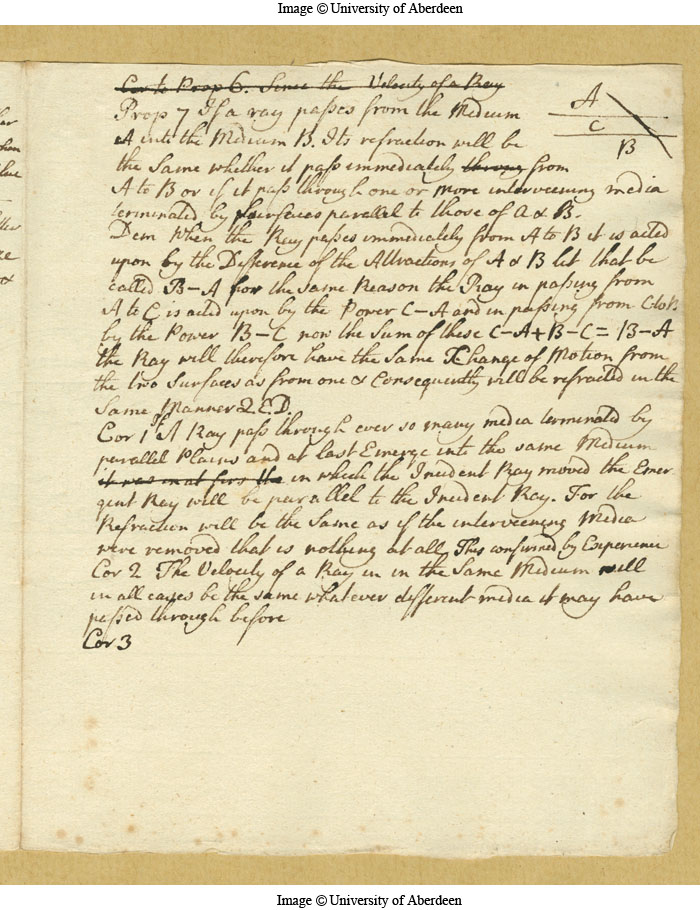 Image © University of Aberdeen
Cor to Prop 6. Since the Velocity of a Ray
Prop 7 If a ray passes from the Medium
A into the Medium B. Its refraction will be
the Same whether it pass immediately throug from
A to B or if it pass through one or more interveening media
terminated by surfaces parallel to those of A & B.
Dem When the Ray passes immediately from A to B it is acted
upon by the Difference of the Attractions of A & B let that be
called B-A for the same Reason the Ray in passing from
A to C is acted upon by the Power C-A and in passing from C to B
by the Power B-C now the Sum of these C-A+B-C=B-A
the Ray will therefore have the Same Change of Motion from
the two Surfaces as from one & Consequently will be refracted in the
Same Manner Q.E.D.
Cor 1st A Ray pass through ever so many media terminated by
parallel Plains and at last Emerge into the same Medium
it was in at firs the in which the Incident Ray moved the Emer
gent Ray will be parallel to the Incident Ray. For the
Refraction will be the Same as if the interveening Media
were removed that is nothing at all This confirmed by Experience
Cor 2 The Velocity of a Ray in in the Same Medium will
in all cases be the same whatever different media it may have
passed through before
Cor 3
A
C
B
Image © University of Aberdeen